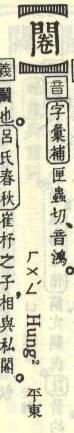 【闀】
音 字彙補 匣蟲切、音鴻。 ㄏㄨㄥˊ Hung² 平東
義 鬭也。呂氏春秋崔杼之子,相與私闀。